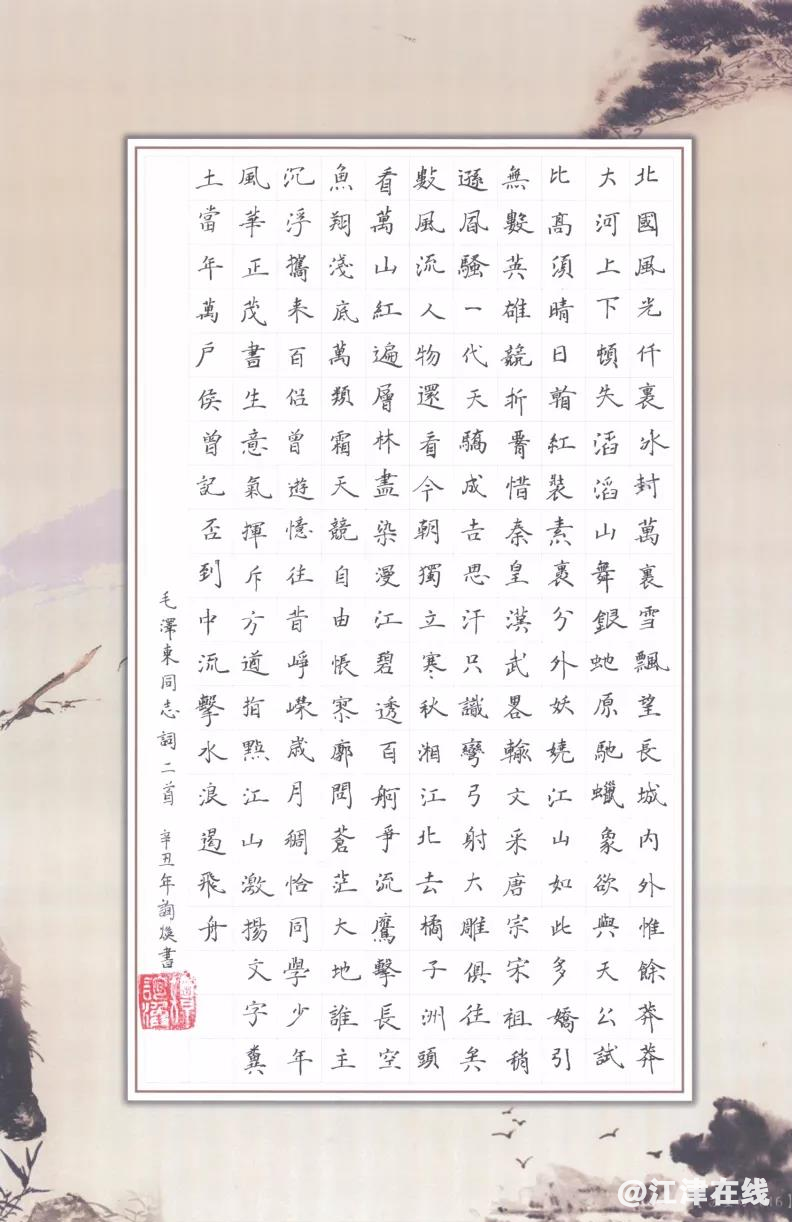 北國風光仟裏氷封萬裏雪飄望長城内外惟餘莽莽
大河上下頓失滔滔山舞銀虵原馳蠟象欲與天公試
比髙須晴日㸔紅裝素裹分外妖嬈江山如此多嬌引
無數英雄競折署惜秦皇漢武畧輸文采唐宗宋祖稍
遜風騷一代天驕成吉思汗只識彎弓射大雕俱往矣
數風流人物還看今朝獨立寒秋湘江北去橘子洲頭
看萬山紅遍層林盡染漫江碧透百舸爭流鷹擊長空
魚翔淺底萬類霜天競自由悵寥廓問蒼茫大地誰主
沉浮攜来百侣曾遊憶往昔崢嶸歲月稠恰同學少年
風華正茂書生意氣揮斥方遒指點江山激揚文字糞
土當年萬户侯曾記否到中流擊水浪遏飛舟
毛澤東同志詞二首 辛丑年詢 書
@江津在线